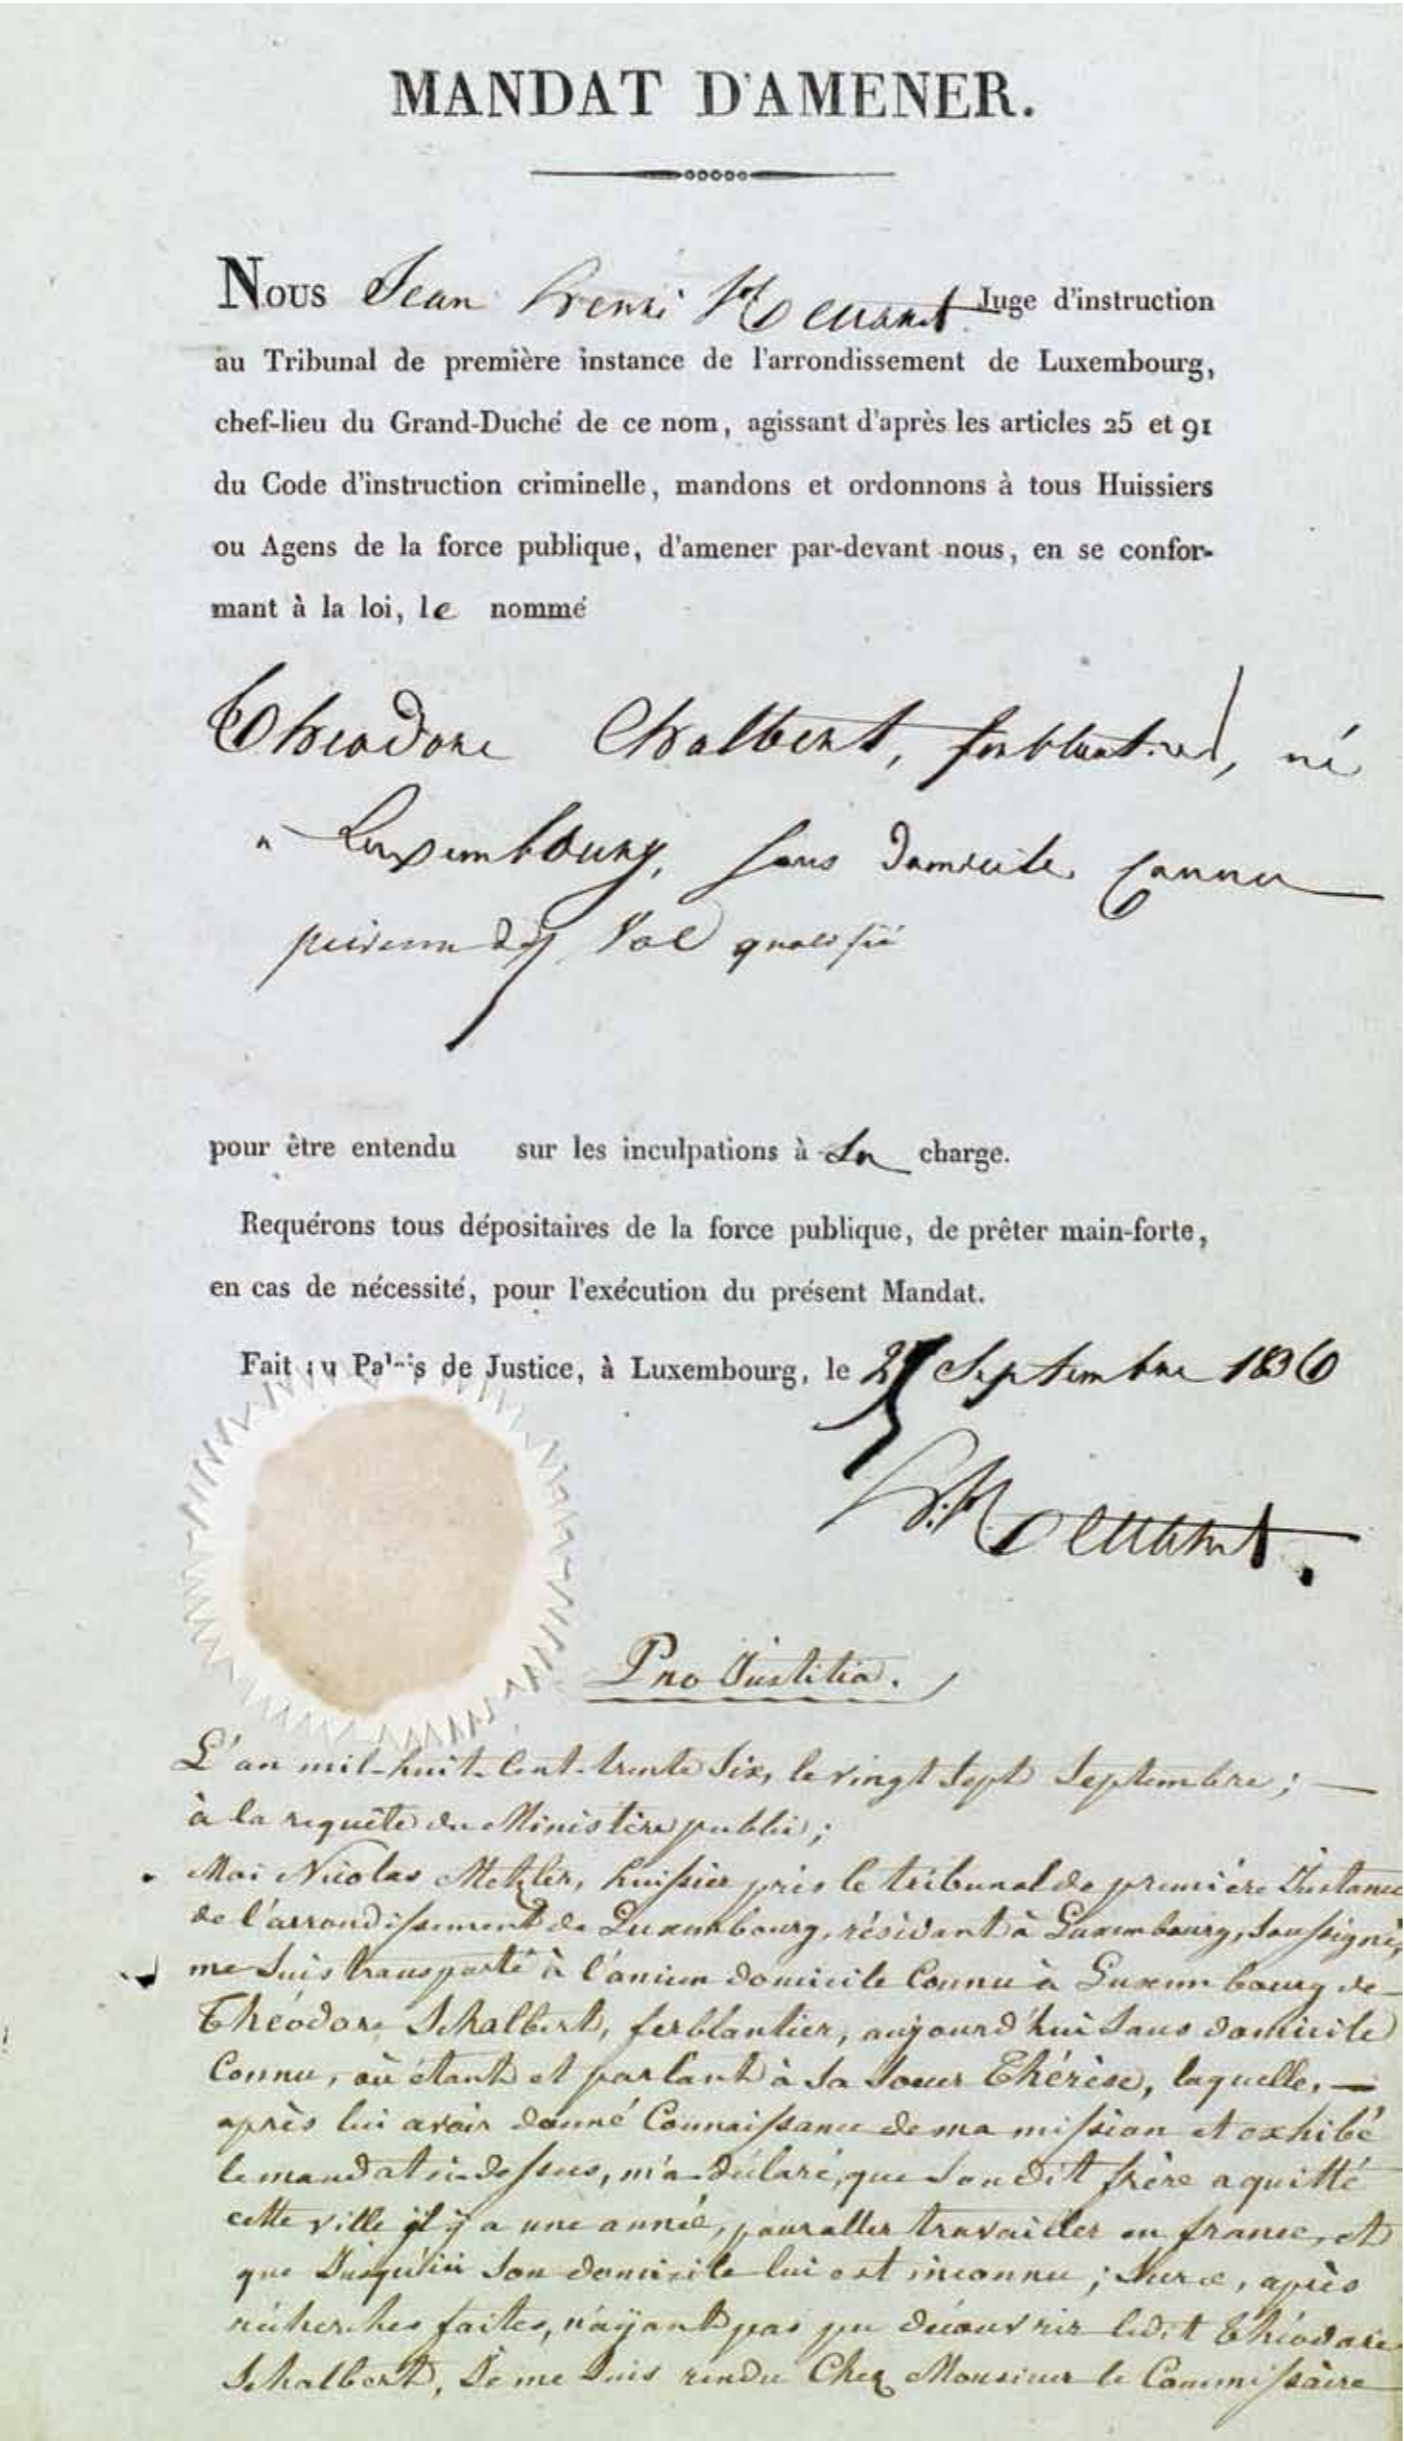 MANDAT D'AMENER.
Nous Jean Henri Juge d'instruction
au Tribunal de première instance de l'arrondissement de Luxembourg,
chef-lieu du Grand-Duché de ce nom, agissant d'après les articles 25 et 91
du Code d'instruction criminelle, mandons et ordonnons à tous Huissiers
ou Agens de la force publique, d'amener par-devant nous, en se confor-
mant à la loi, le nommé
Théodore Schalbert, ferblantier, né
à Luxembourg, sans domicile connu
prévenu de vol qualifié
pour être entendu sur les inculpations à sa charge.
Requérons tous dépositaires de la force publique, de prêter main-forte,
en cas de nécessité, pour l'exécution du présent Mandat.
Fait au Palais de Justice, à Luxembourg, le Septembre 1836
Pro Justitia.
L'an mil-huit-Cent-trente Six, le vingt Sept Septembre ;
à la requête du Ministère public ;
Moi Nicolas Metzler, huissier près le tribunal de première Instance
de l'arrondissement de Luxembourg, résidant à Luxembourg, Soussigné,
me Suis transporté à l'ancien domicile Connu à Luxembourg de
Théodore Schalbert, ferblantier, aujourd'hui Sans domicile
Connu, où étant et parlant à Sa Soeur Thérèse, laquelle,
après lui avoir donné Connaissance de ma mission et exhibé
le mandat ci-dessus, m'a déclaré, que Son dit frère a quitté
cette ville il y a une année, pour aller travailler en france, et
que Jusqu'ici Son domicile lui est inconnu ; Sur ce, après
recherches faites, n'ayant pas pu découvrir ledit Théodore
Schalbert, Je me Suis rendu Chez Monsieur le Commissaire